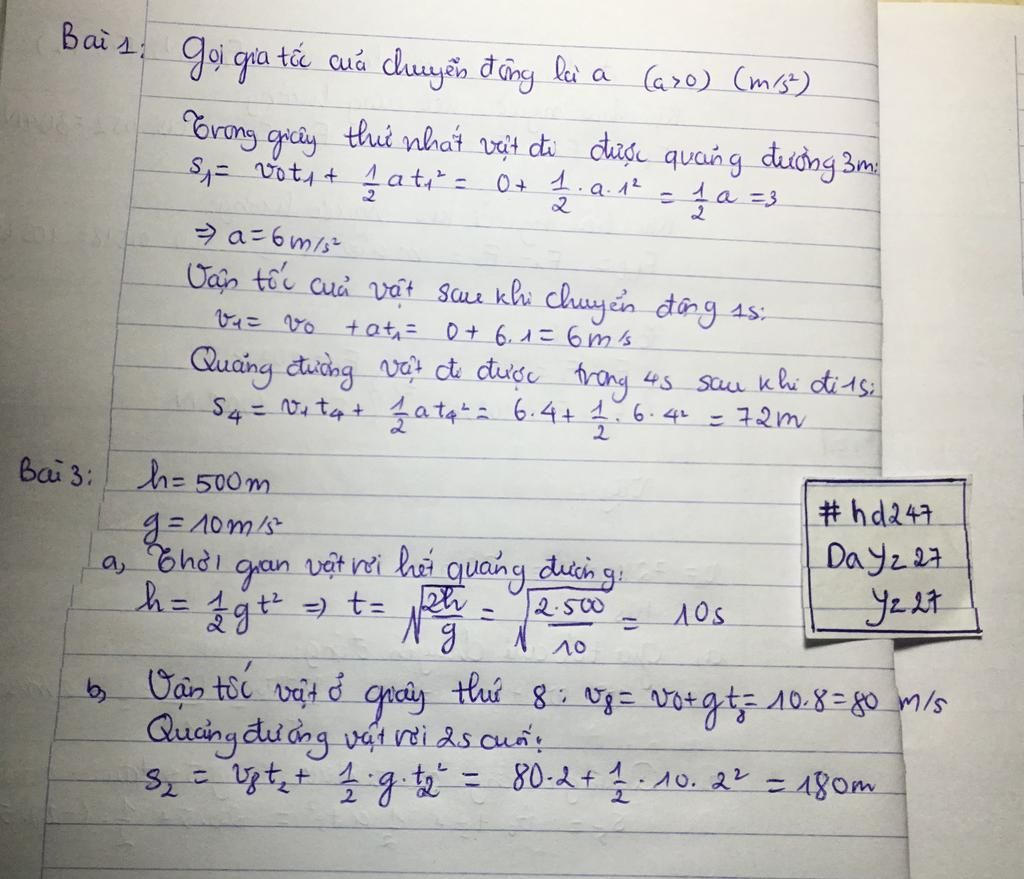 Bài 1: Gọi gia tốc của chuyển động là a (a>0) (m/s²)
Trong giây thứ nhất vật đi được quãng đường 3m:
S₁ = v₀t₁ + 1/2 at₁² = 0 + 1/2 . a . 1² = 1/2 a = 3
⇒ a = 6 m/s²
Vận tốc của vật sau khi chuyển động 1s:
v₁ = v₀ + at₁ = 0 + 6.1 = 6 m/s
Quãng đường vật đi được trong 4s sau khi đi 1s:
S₄ = v₁t₄ + 1/2 at₄² = 6.4 + 1/2 . 6 . 4² = 72m
Bài 3: h = 500m
g = 10 m/s²
a, Thời gian vật rơi hết quãng đường:
h = 1/2 gt² ⇒ t = √(2h/g) = √(2.500/10) = 10s
b, Vận tốc vật ở giây thứ 8: v₈ = v₀ + gt₈ = 10.8 = 80 m/s
Quãng đường vật rơi 2s cuối:
S₂ = v₈t₂ + 1/2 . g . t₂² = 80.2 + 1/2 . 10 . 2² = 180m
#hd247
Dayz27
yz27